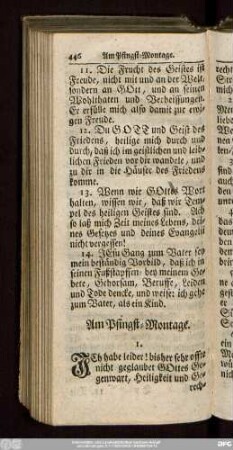 446 Am Pfingst-Montage.
11. Die Frucht des Geistes ist
Freude, nicht mit und an der Welt,
sondern an GOtt, und an seinen
Wohlthaten und Verheissungen.
Er erfülle mich also damit zur ewi-
gen Freude.
12. Du GOTT und Geist des
Friedens, heilige mich durch und
durch, daß ich im geistlichen und leib-
lichen Frieden vor dir wandele, und
zu dir in die Häuser des Friedens
komme.
13. Wenn wir GOttes Wort
halten, wissen wir, daß wir Tem-
pel des heiligen Geistes sind. Ach
so laß mich Zeit meines Lebens, dei-
nes Gesetzes und deines Evangelii
nicht vergessen!
14. JEsu Gang zum Vater sey
mein beständig Vorbild, daß ich in
seinen Fußstapffen bey meinem Ge-
bete, Gehorsam, Beruffe, Leiden
und Tode dencke, und weiß: ich gehe
zum Vater, als ein Kind.
Am Pfingst-Montage.
1.
ICh habe leider! bisher sehr offte
nicht geglaubet GOttes Ge-
genwart, Heiligkeit und Ge-
rech-